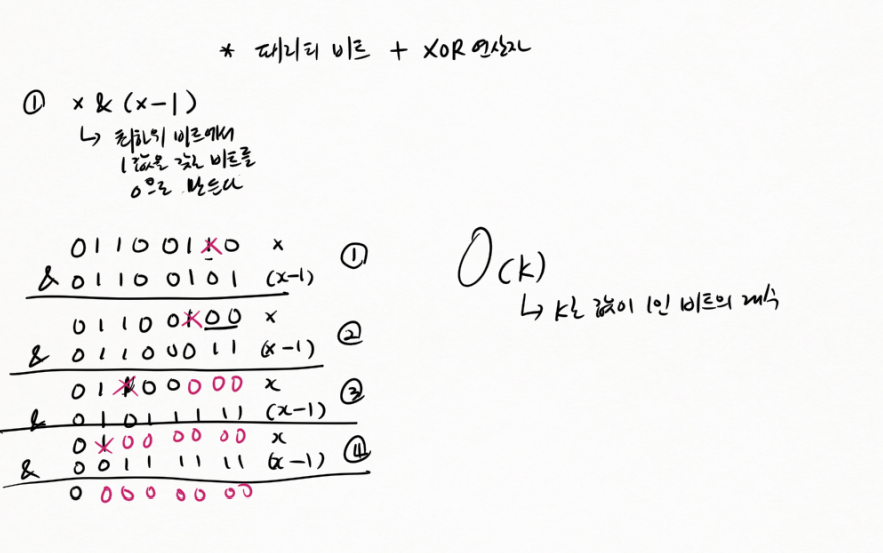 * 패리티 비트 + XOR 연산자
① x & (x-1)
↳ 최하위 비트에서
1 값을 갖는 비트를
0으로 만든다
01100110 x ①
& 01100101 (x-1)
01100100 x ②
& 01100011 (x-1)
01100000 x ③
& 01011111 (x-1)
01000000 x ④
& 00111111 (x-1)
00000000
O(k)
↳ k는 값이 1인 비트의 개수